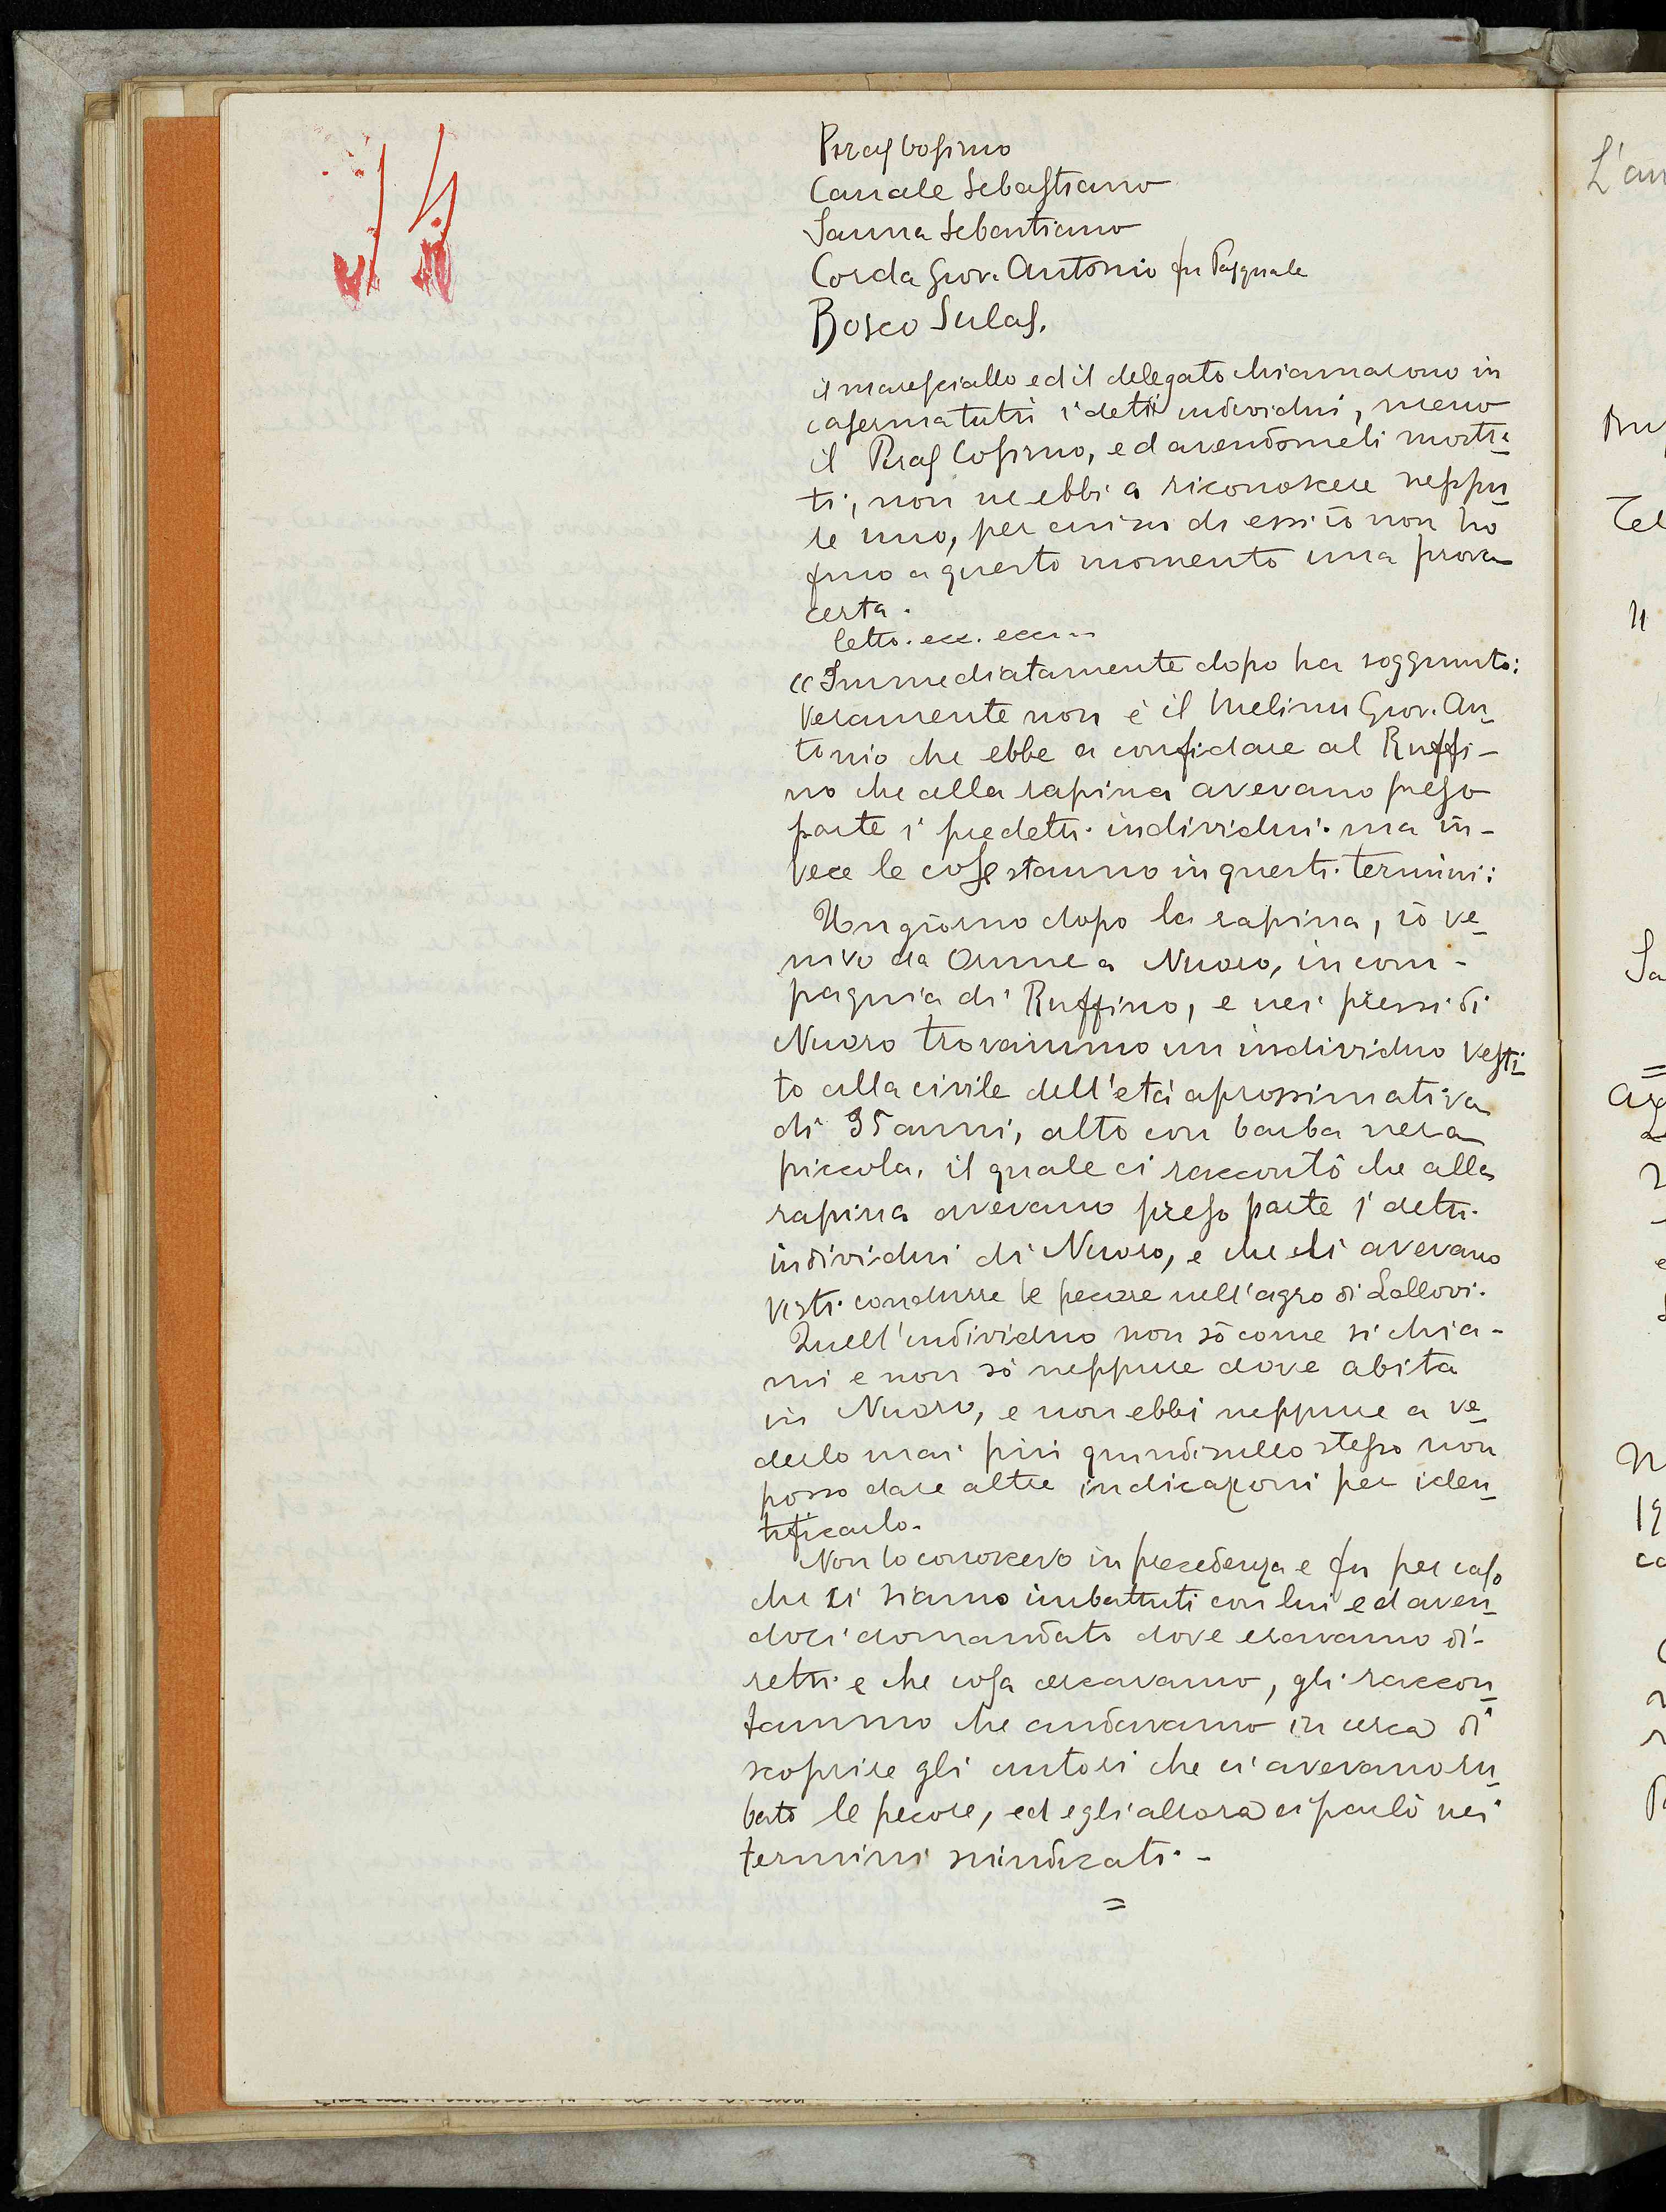 Piras Cosimo
Canale Sebastiano
Sanna Sebantiano
Corda Giov. Antonio fu Pasquale
Bosco Sulas.
il maresciallo ed il delegato chiamarono in
caserma tutti i detti individui, meno
il Piras Cosimo, ed avendomeli mostra
ti, non ne ebbi a riconoscere neppu
re uno, per cui su di essi io non ho
fino a questo momento una prova
certa.
letto. ecc. ecc...
«Immediatamente dopo ha soggiunto:
Veramente non è il Melinu Giov. An
tonio che ebbe a confidare al Ruffi-
no che alla rapina avevano preso
parte i predetti individui. ma in-
vece le cose stanno in questi termini:
Un giorno dopo la rapina, io ve
nivo da Orune a Nuoro, in com-
pagnia di Ruffino, e nei pressi di
Nuoro trovammo un individuo vesti
to alla civile dell'età aprossimativa
di 35 anni, alto con barba nera
piccola, il quale ci raccontò che alla
rapina avevano preso parte i detti
individui di Nuoro, e che li avevano
visti condurre le pecore nell'agro di Lollovi.
Quell'individuo non sò come si chia-
mi e non sò neppure dove abita
in Nuoro, e non ebbi neppure a ve
derlo mai più quindi sullo stesso non
posso dare altre indicazioni per iden
tificarlo.
Non lo conoscevo in precedenza e fu per caso
che ci siamo imbattuti con lui ed aven
doci domandato dove eravamo di-
retti e che cosa cercavamo, gli raccon
tammo che andavamo in cerca di
scoprire gli autori che ci avevano ru
bato le pecore, ed egli allora ci parlò nei
termini suindicati. -
=
L'an
Tel
Sa
=
N
19